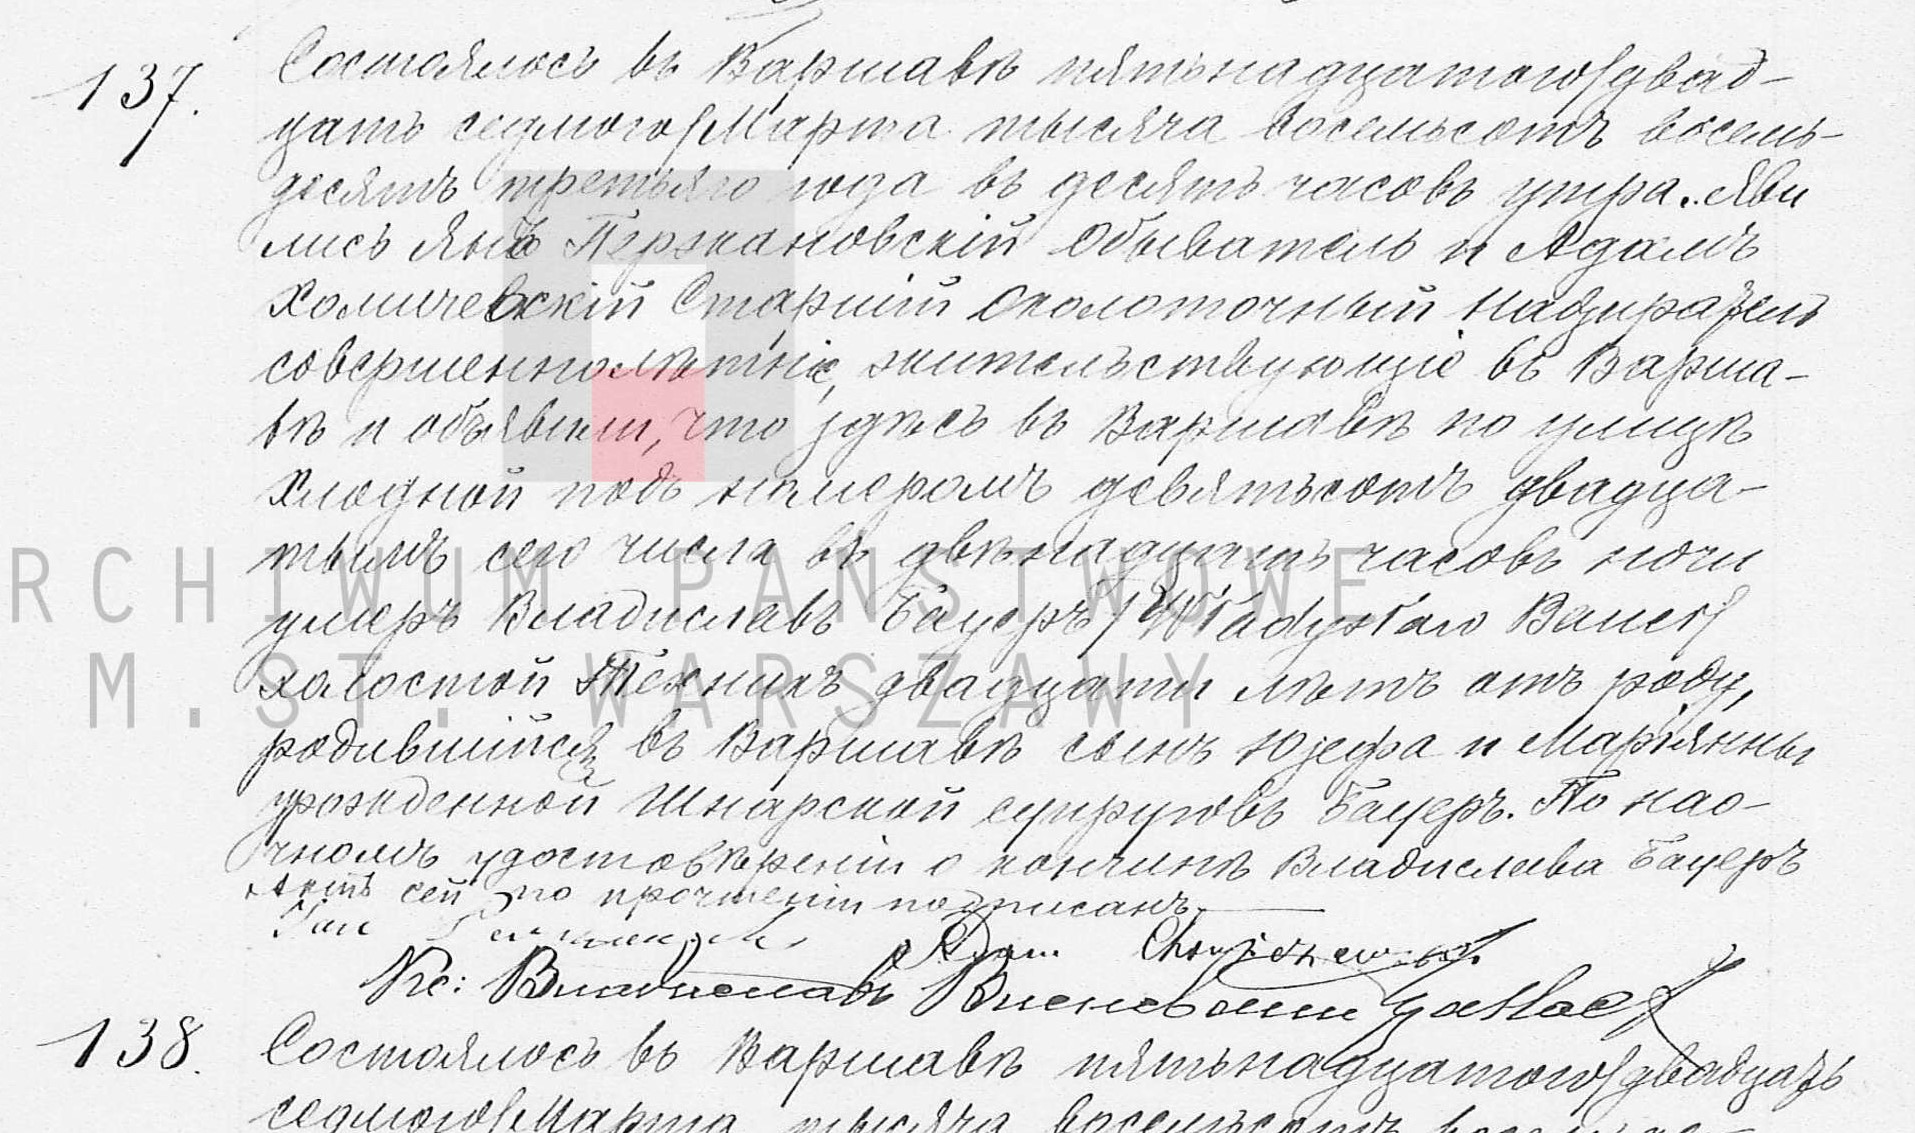 137.
Состоялось въ Варшавѣ пятьнадцатого/двад-
цать седмого/Марта тысяча восемьсотъ восемь-
десятъ третьяго года въ десять часовъ утра. Яви
лись Янъ Пержановскій обыватель и Адамъ
Хомичевскій Старшій околоточный надзиратель
совершеннолѣтніе, жительствующіе въ Варша-
вѣ и объявили, что здѣсь въ Варшавѣ по улицѣ
Хлодной подъ номеромъ девятьсотъ двадца-
тымъ сего числа въ двѣнадцать часовъ ночи
умеръ Владиславъ Бауеръ /Władysław Bauer/
холостой Техникъ двадцати лѣтъ отъ роду,
родившійся въ Варшавѣ сынъ Юзефа и Маріянны
урожденной Шнарской супруговъ Бауеръ. По нао-
чномъ удостовѣреніи о кончинѣ Владислава Бауеръ
Актъ сей по прочтеніи подписанъ.
Jan
Adam
Кс: Владиславъ
138.
Состоялось въ Варшавѣ пятьнадцатого/двадцать
седмого/Марта тысяча восемьсотъ
ARCHIWUM PAŃSTWOWE
M.ST. WARSZAWY